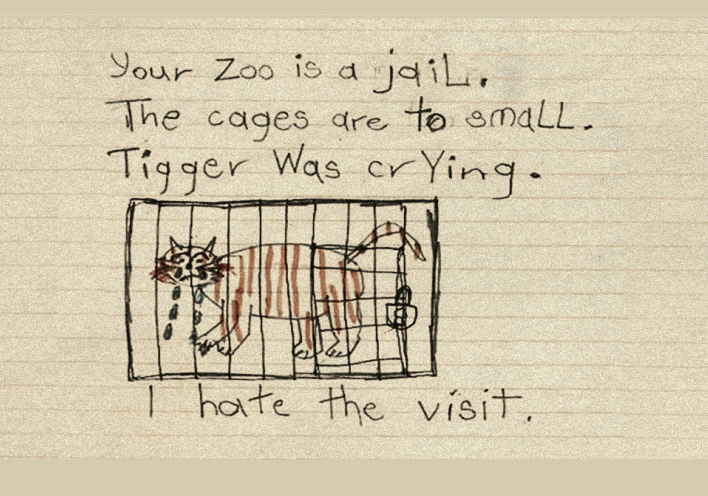 Your Zoo is a jaiL.
The cages are to smaLL.
Tigger Was crYing.
I hate the visit.